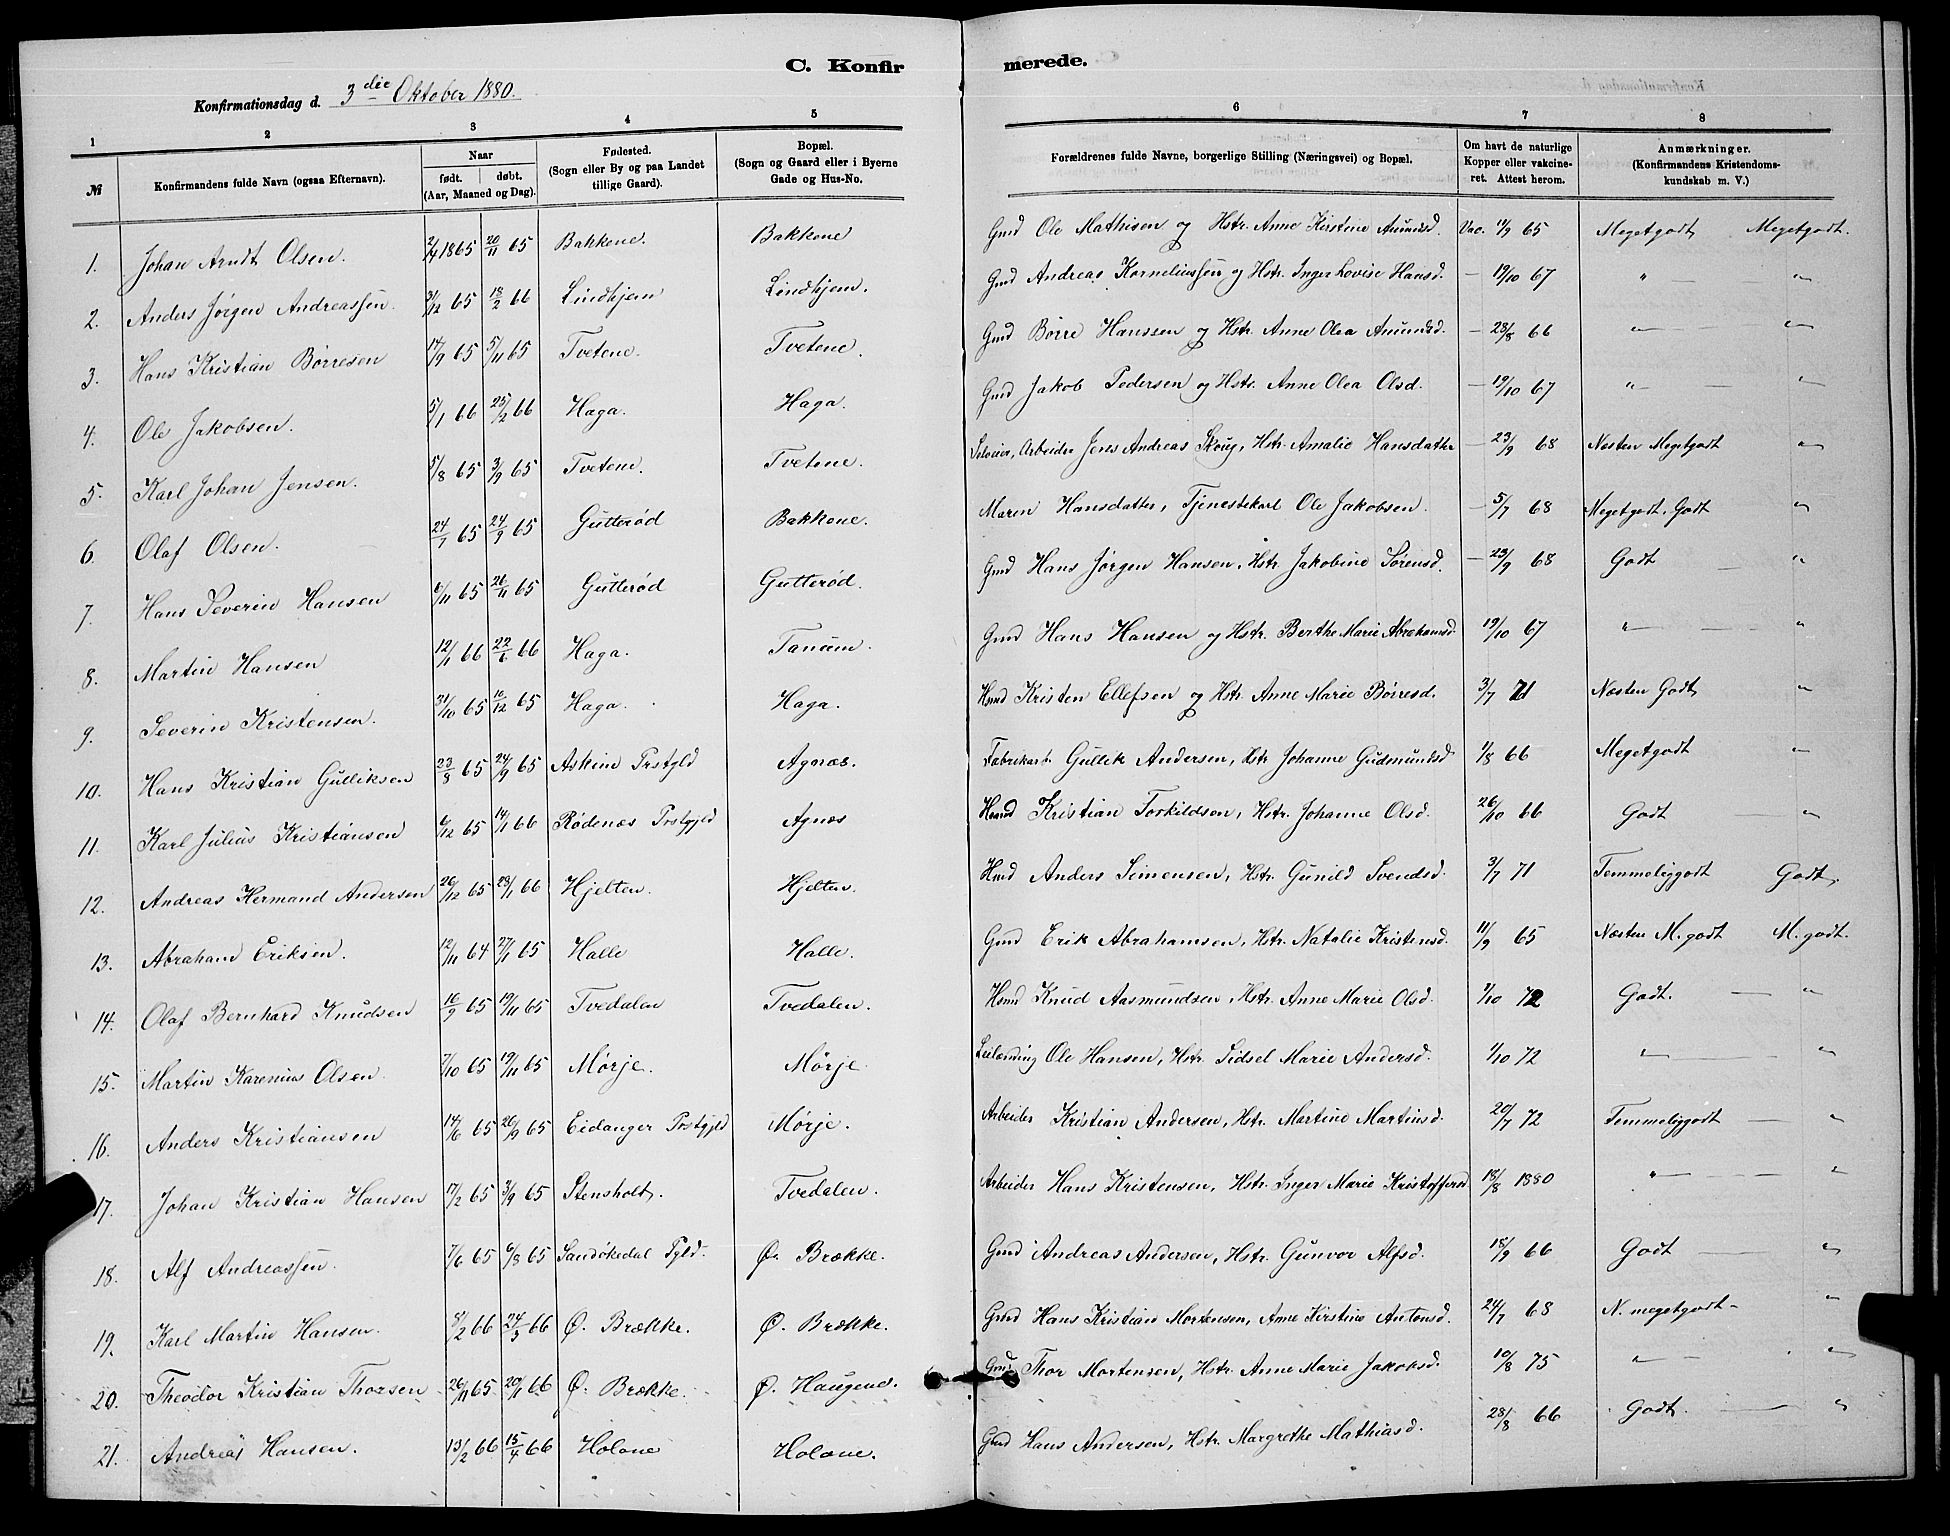 C. Konfirmerede.
Konfirmationsdag d. 3die Oktober 1880.
1 2 3 4 5 6 7 8
№ Konfirmandens fulde Navn (ogsaa Efternavn). Naar født. døbt. (Aar, Maaned og Dag). Fødested. (Sogn eller By og paa Landet tillige Gaard). Bopæl. (Sogn og Gaard eller i Byerne Gade og Hus-No. Forældrenes fulde Navne, borgerlige Stilling (Næringsvei) og Bopæl. Om havt de naturlige Kopper eller vakcineret. Attest herom. Anmærkninger. (Konfirmandens Kristendomskundskab m. V.)
1. Johan Arndt Olsen. 2/4 1865 20/11 65 Bakkene. Bakkene Gmd Ole Mathisen og Hstr. Anne Kirstine Amundsd. Vac. 11/9 65 Megetgodt Megetgodt.
2. Anders Jørgen Andreassen. 31/12 65 18/2 66 Lindhjem Lindhjem. Gmd Andreas Korneliussen og Hstr. Inger Lovise Hansd. — 19/10 67 " — "
3. Hans Kristian Børresen 17/9 65 5/11 65 Tvetene. Tvetene. Gmd Børre Hanssen og Hstr. Anne Olea Amundsd. — 28/8 66 " — "
4. Ole Jakobsen. 5/1 66 25/2 66 Haga. Haga. Gmd Jakob Pedersen og Hstr. Anne Olea Olsd. — 19/10 67 " — "
5. Karl Johan Jensen. 5/8 65 3/9 65 Tvetene. Tvetene. Arbeider Jens Andreas Skoug, Hstr. Amalie Hansdatter — 23/9 68 Næsten Megetgodt "
6. Olaf Olsen. 24/7 65 24/9 65 Gutterød Bakkene. Maren Hansdatter, Tjenestekarl Ole Jakobsen. — 5/7 68 Megetgodt. Godt "
7. Hans Severin Hansen 6/11 65 26/11 65 Gutterød Gutterød. Gmd Hans Jørgen Hansen, Hstr. Jakobine Sørensd. — 23/9 68 Godt — "
8. Martin Hansen 12/1 66 22/1 66 Haga. Tanum. Gmd Hans Hansen og Hstr. Berthe Marie Abrahamsd. 19/10 67 " — "
9. Severin Kristensen. 31/10 65 10/12 65 Haga. Haga. Hmd Kristen Ellefsen og Hstr. Anne Marie Børresd. 3/7 71 Næsten Godt "
10. Hans Kristian Gulliksen 23/8 65 24/9 65 Askim Prstgld Agnæs. Fabrikarb. Gullik Andersen, Hstr. Johanne Gudmundsd 1/8 66 Megetgodt "
11. Karl Julius Kristiansen 6/12 65 14/1 66 Rødenæs Prstgjld Agnæs Hmd Kristian Torkildsen, Hstr. Johanne Olsd. 26/10 66 Godt — "
12. Andreas Hermand Andersen 26/12 65 28/1 66 Hjelten. Hjelten. Hmd Anders Simensen, Hstr. Gunild Svendsd. 3/7 71 Temmeliggodt Godt.
13. Abraham Eriksen. 12/11 64 27/1 65 Halle Halle. Gmd Erik Abrahamsen, Hstr. Natalie Kristensd. 11/9 65 Næsten M. godt M. godt.
14. Olaf Bernhard Knudsen 10/9 65 19/11 65 Tvedalen Tvedalen. Hsmd Knud Aasmundsen, Hstr. Anne Marie Olsd. 1/10 72 Godt. — "
15. Martin Karenius Olsen. 7/10 65 19/11 65 Mørje. Mørje. Leilænding Ole Hansen, Hstr. Sidsel Marie Andersd. 1/10 72 " — "
16. Anders Kristiansen 14/6 65 26/9 65 Eidanger Prstgjld Mørje. Arbeider Kristian Andersen, Hstr. Martine Martinsd. 20/7 72 Temmeliggodt — "
17. Johan Kristian Hansen 17/2 65 3/9 65 Stensholt. Tvedalen. Arbeider Hans Kristensen, Hstr. Inger Marie Kristoffersd 18/8 1880 " — "
18. Alf Andreassen. 7/6 65 6/8 65 Sandøkedal Pgld. Ø. Brække. Gmd Andreas Andersen, Hstr. Gunvor Alfsd. 18/9 66 Godt "
19. Karl Martin Hansen. 8/2 66 24/3 66 Ø. Brække. Ø. Brække. Gmd Hans Kristian Mortensen, Anne Kirstine Antonsd. 24/7 68 N. megetgodt "
20. Theodor Kristian Thorsen 26/11 65 20/1 66 Ø. Brække. Ø. Haugene. Gmd Thor Mortensen, Hstr. Anne Marie Jakobsd. 10/8 75 " — "
21. Andreas Hansen. 13/2 66 15/4 66 Holane Holane. Gmd Hans Andersen, Hstr. Margrethe Mathiasd. 28/8 66 Godt. — "